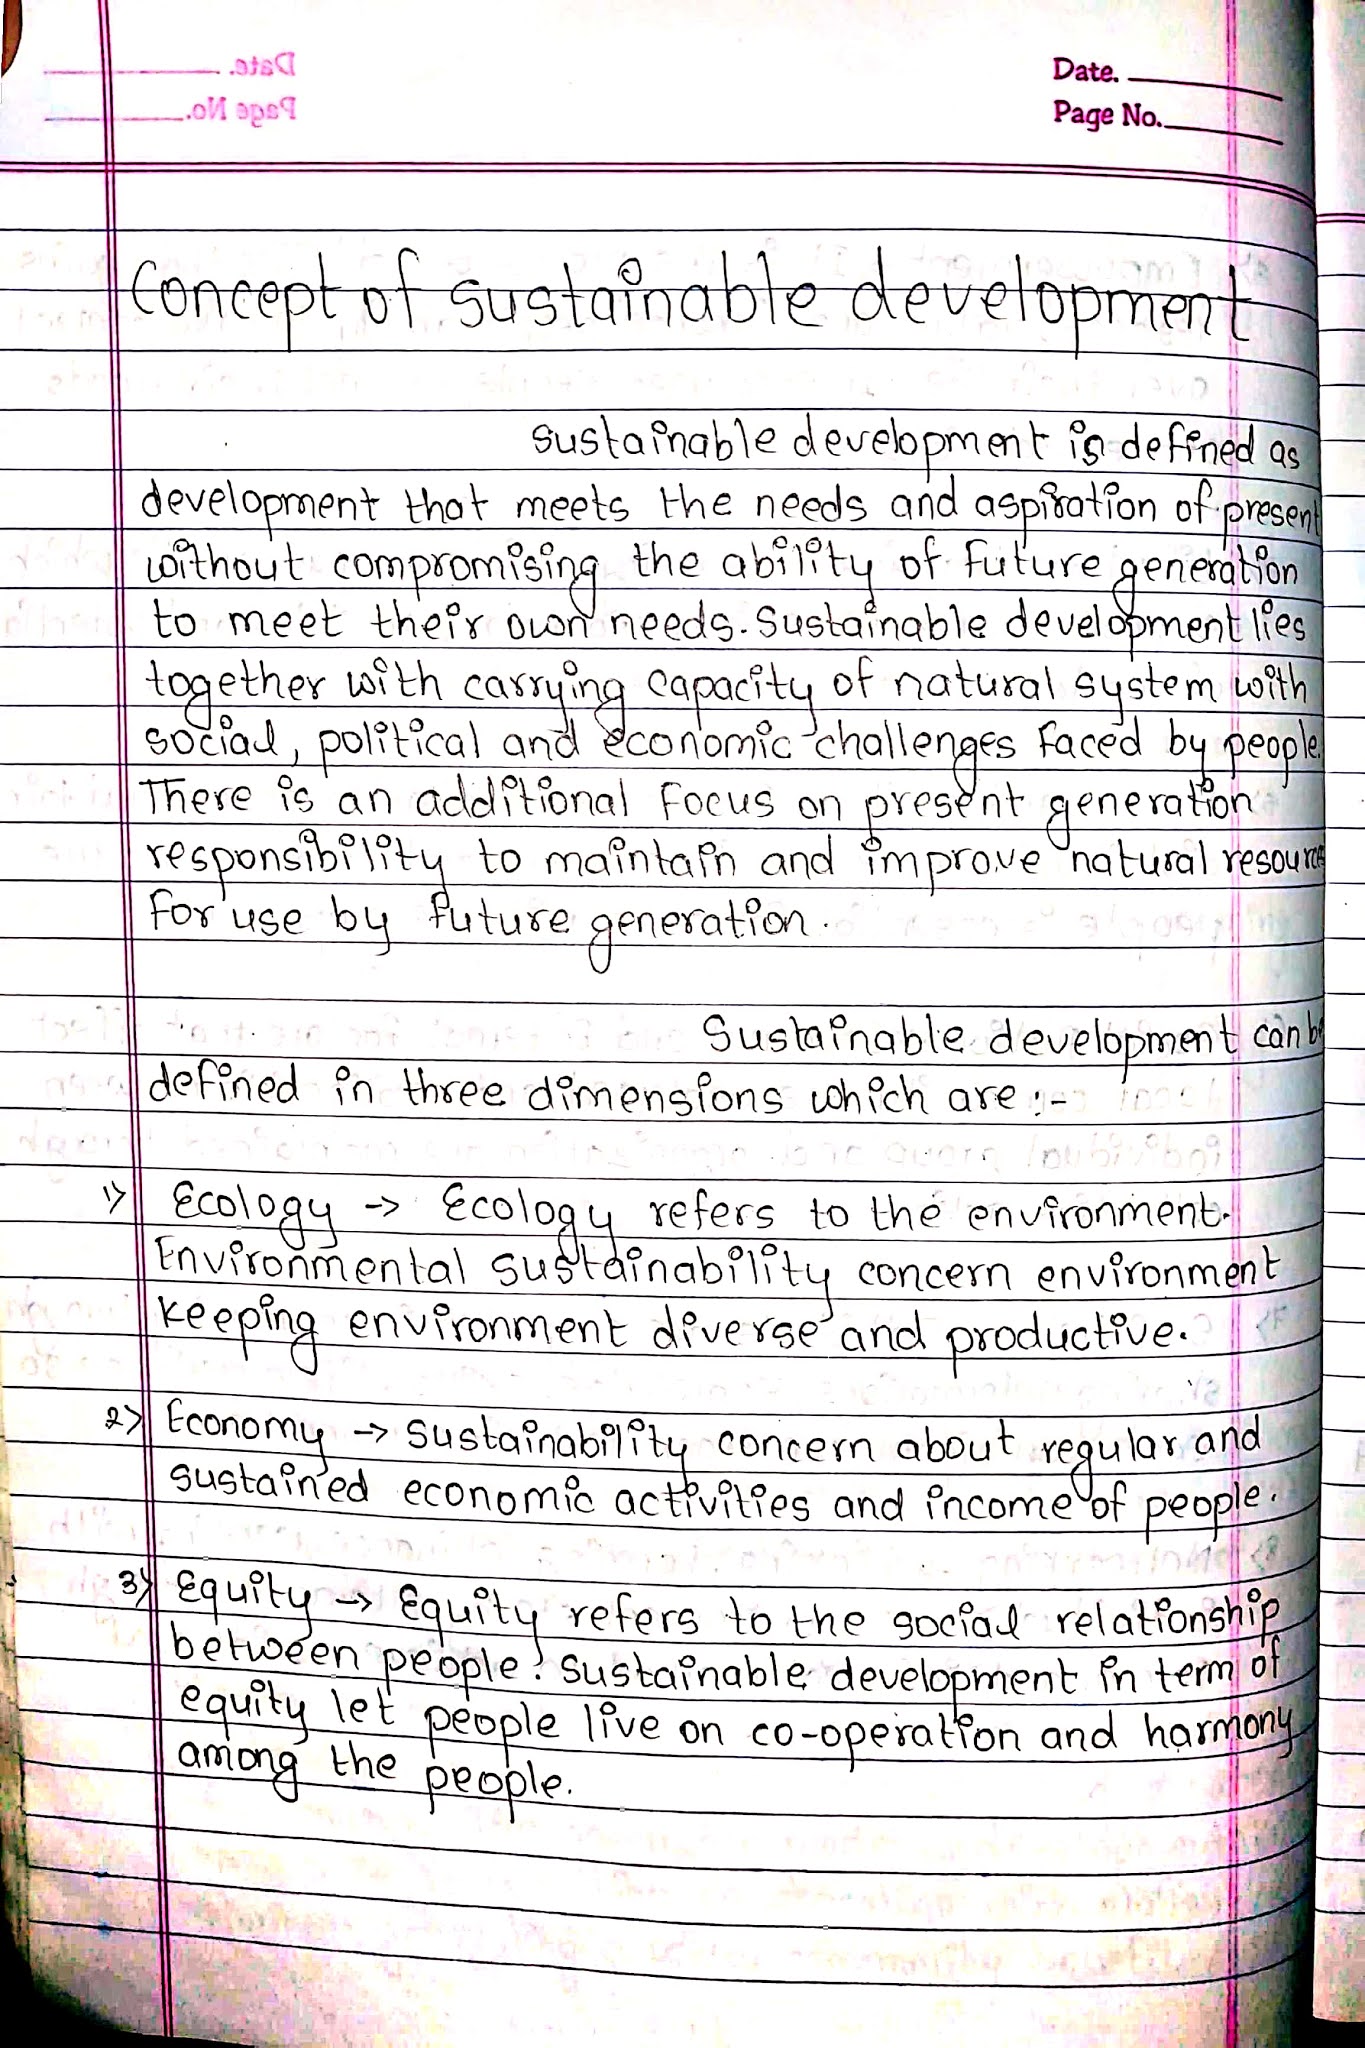 Date.
Page No.
Concept of sustainable development
Sustainable development is defined as
development that meets the needs and aspiration of present
without compromising the ability of future generation
to meet their own needs. Sustainable development lies
together with carrying capacity of natural system with
social, political and economic challenges faced by people.
There is an additional focus on present generation
responsibility to maintain and improve natural resource
for use by future generation.
Sustainable development can be
defined in three dimensions which are :-
1> Ecology → Ecology refers to the environment.
Environmental sustainability concern environment
keeping environment diverse and productive.
2> Economy → Sustainability concern about regular and
sustained economic activities and income of people.
3> Equity → Equity refers to the social relationship
between people. Sustainable development in term of
equity let people live on co-operation and harmony
among the people.